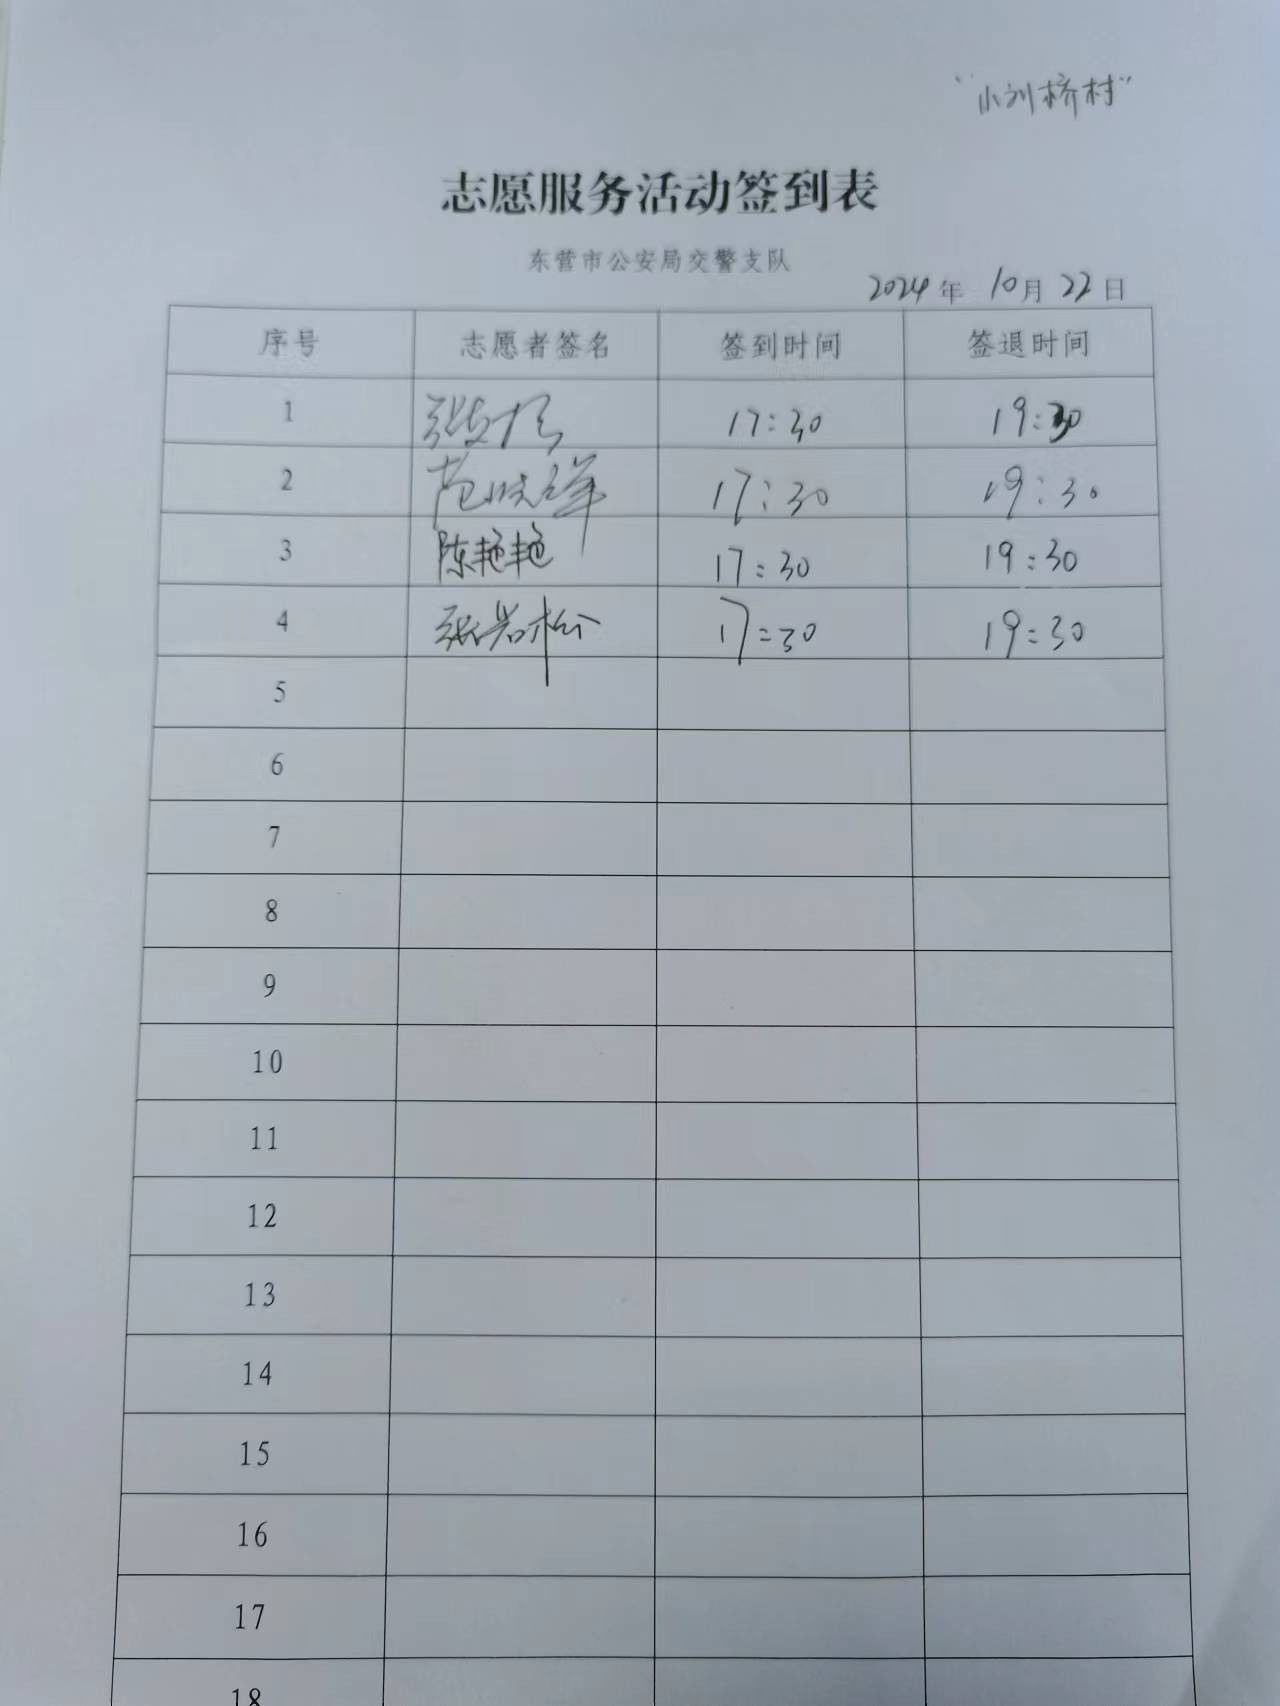 "小刘桥村"
志愿服务活动签到表
东营市公安局交警支队
2024年 10月 22日
序号 志愿者签名 签到时间 签退时间
1 17:30 19:30
2 范晓军 17:30 19:30
3 陈艳艳 17:30 19:30
4 张岩松 17:30 19:30
5
6
7
8
9
10
11
12
13
14
15
16
17
18